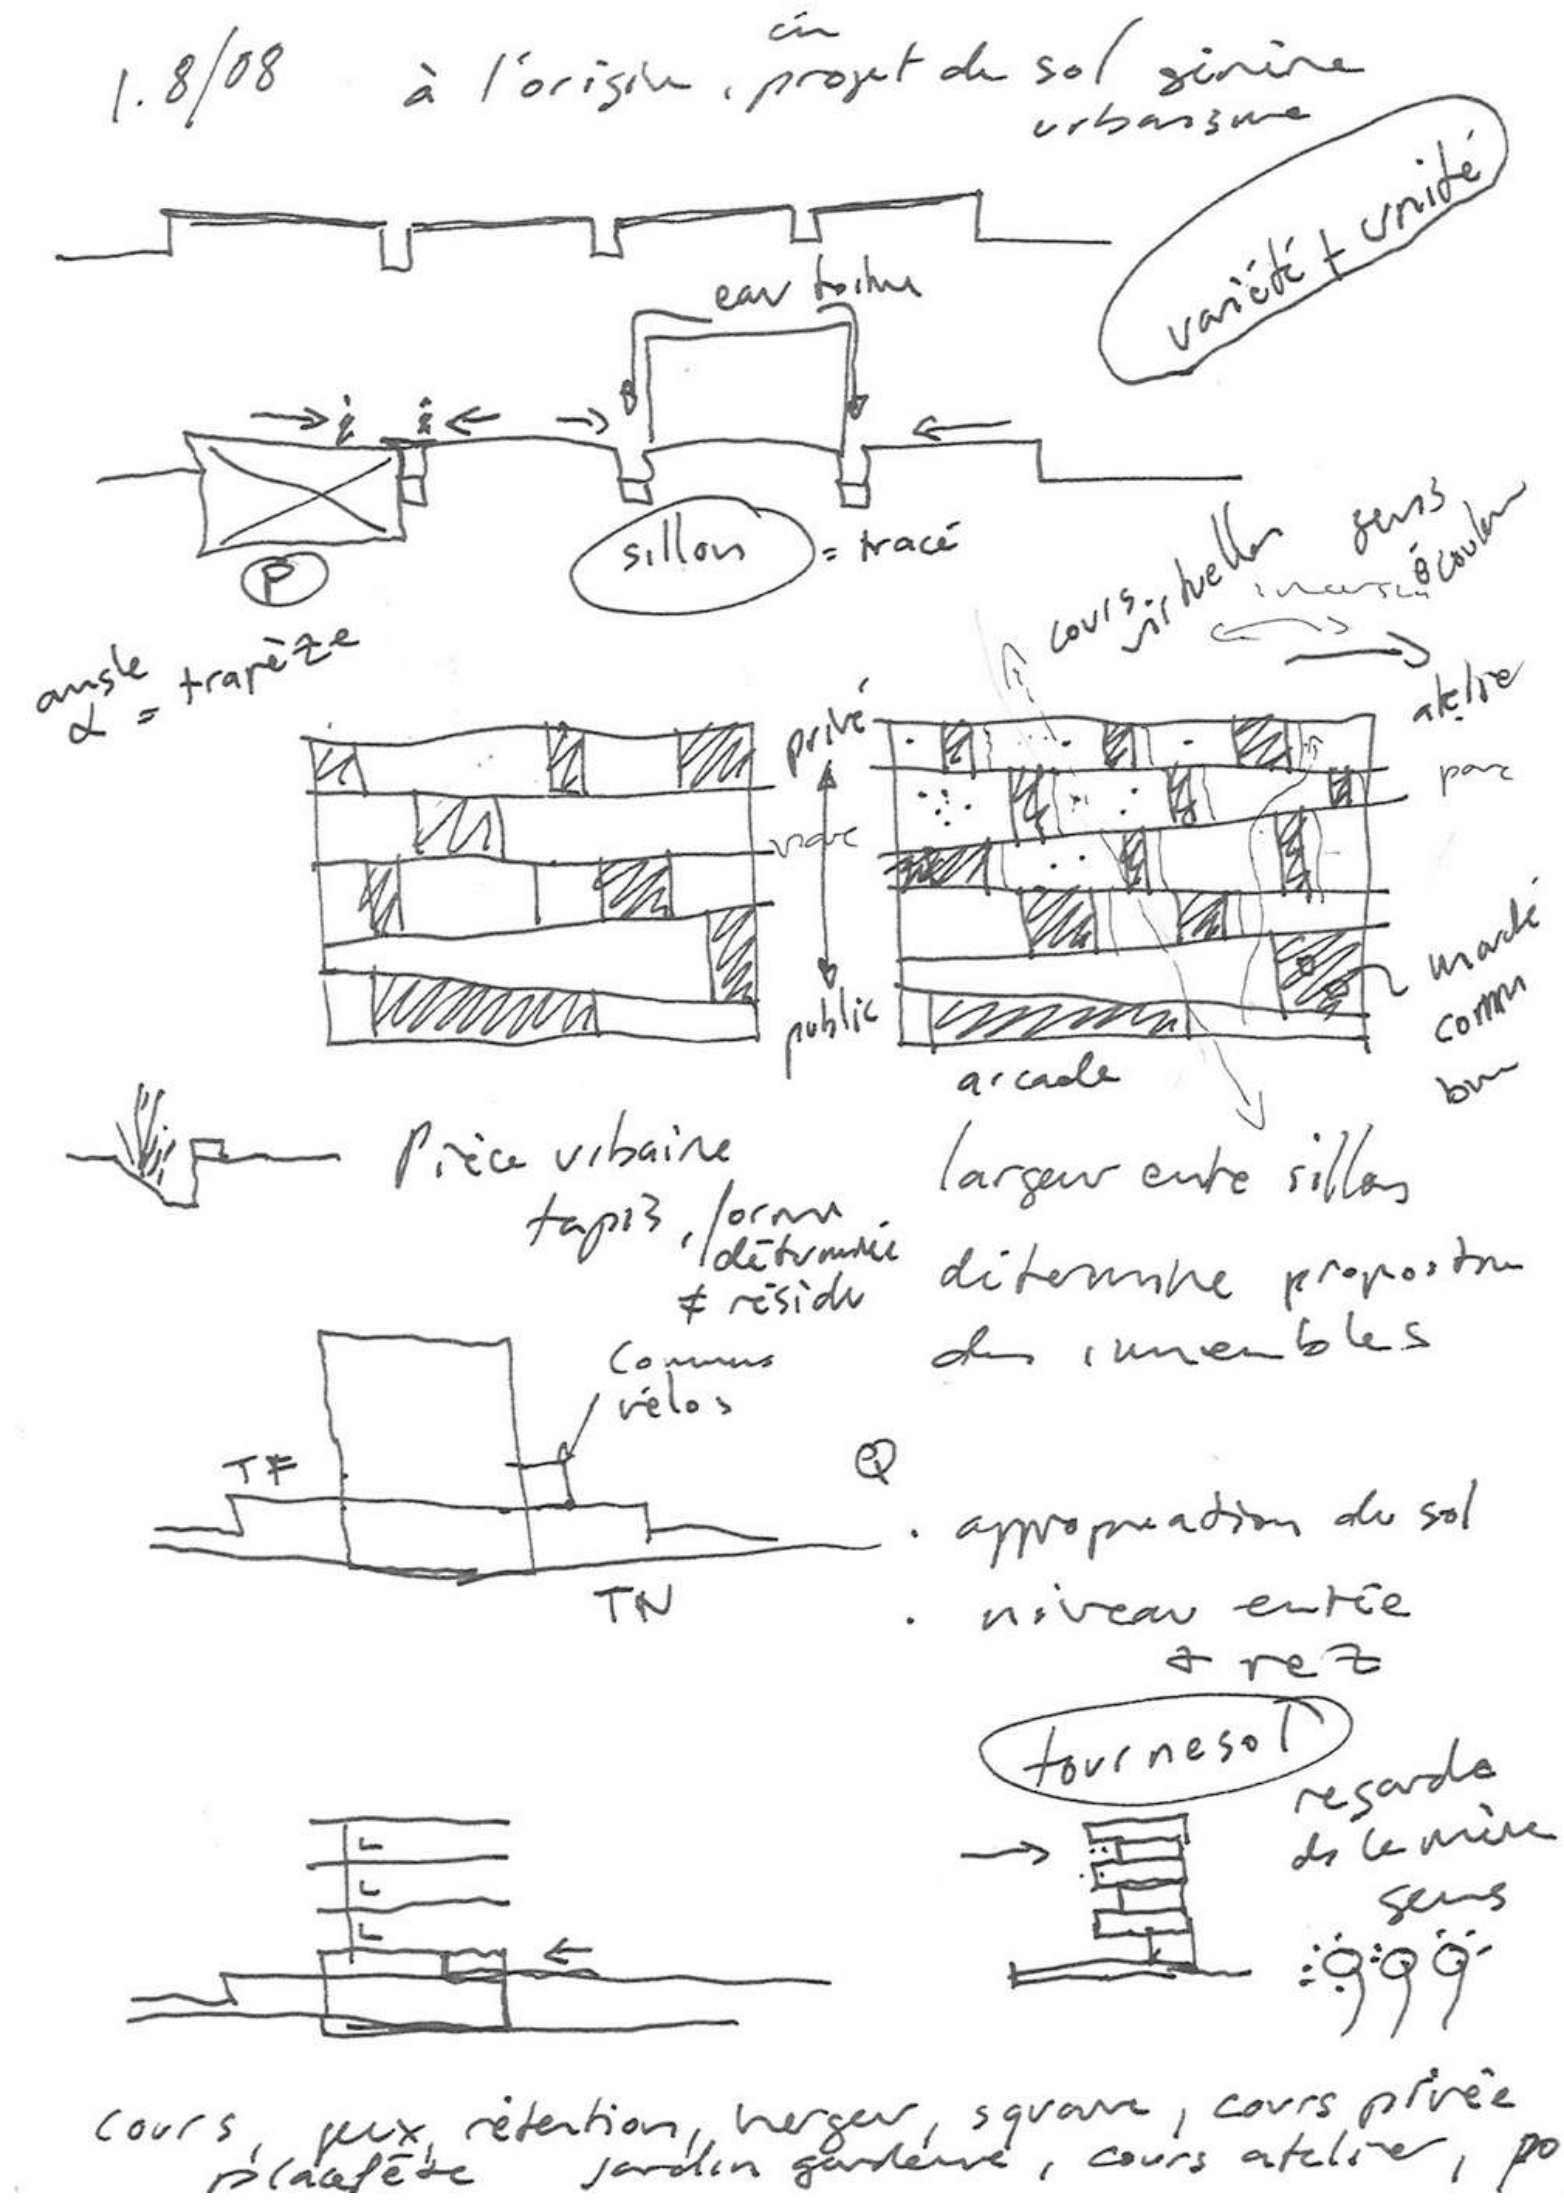 1.8/08 à l'origine, un projet du sol génère
urbanisme
variété + unité
eau toiture
P
sillon = tracé
angle
α = trapèze
cours virtuelles
sens
écoulem
inverse
privé
public
atelie
parc
arcade
marché
comm
bur
Pièce urbaine
tapis, forme
déterminée
≠ résidu
largeur entre sillons
détermine proportion
des immeubles
Communs
vélos
TF
TN
Q
. appropriation du sol
. niveau entrée
+ rez
tournesol
regarde
ds le même
sens
L
L
L
cours, jeux, rétention, verger, square, cours privée
place fête jardin garderie, cours atelier, po